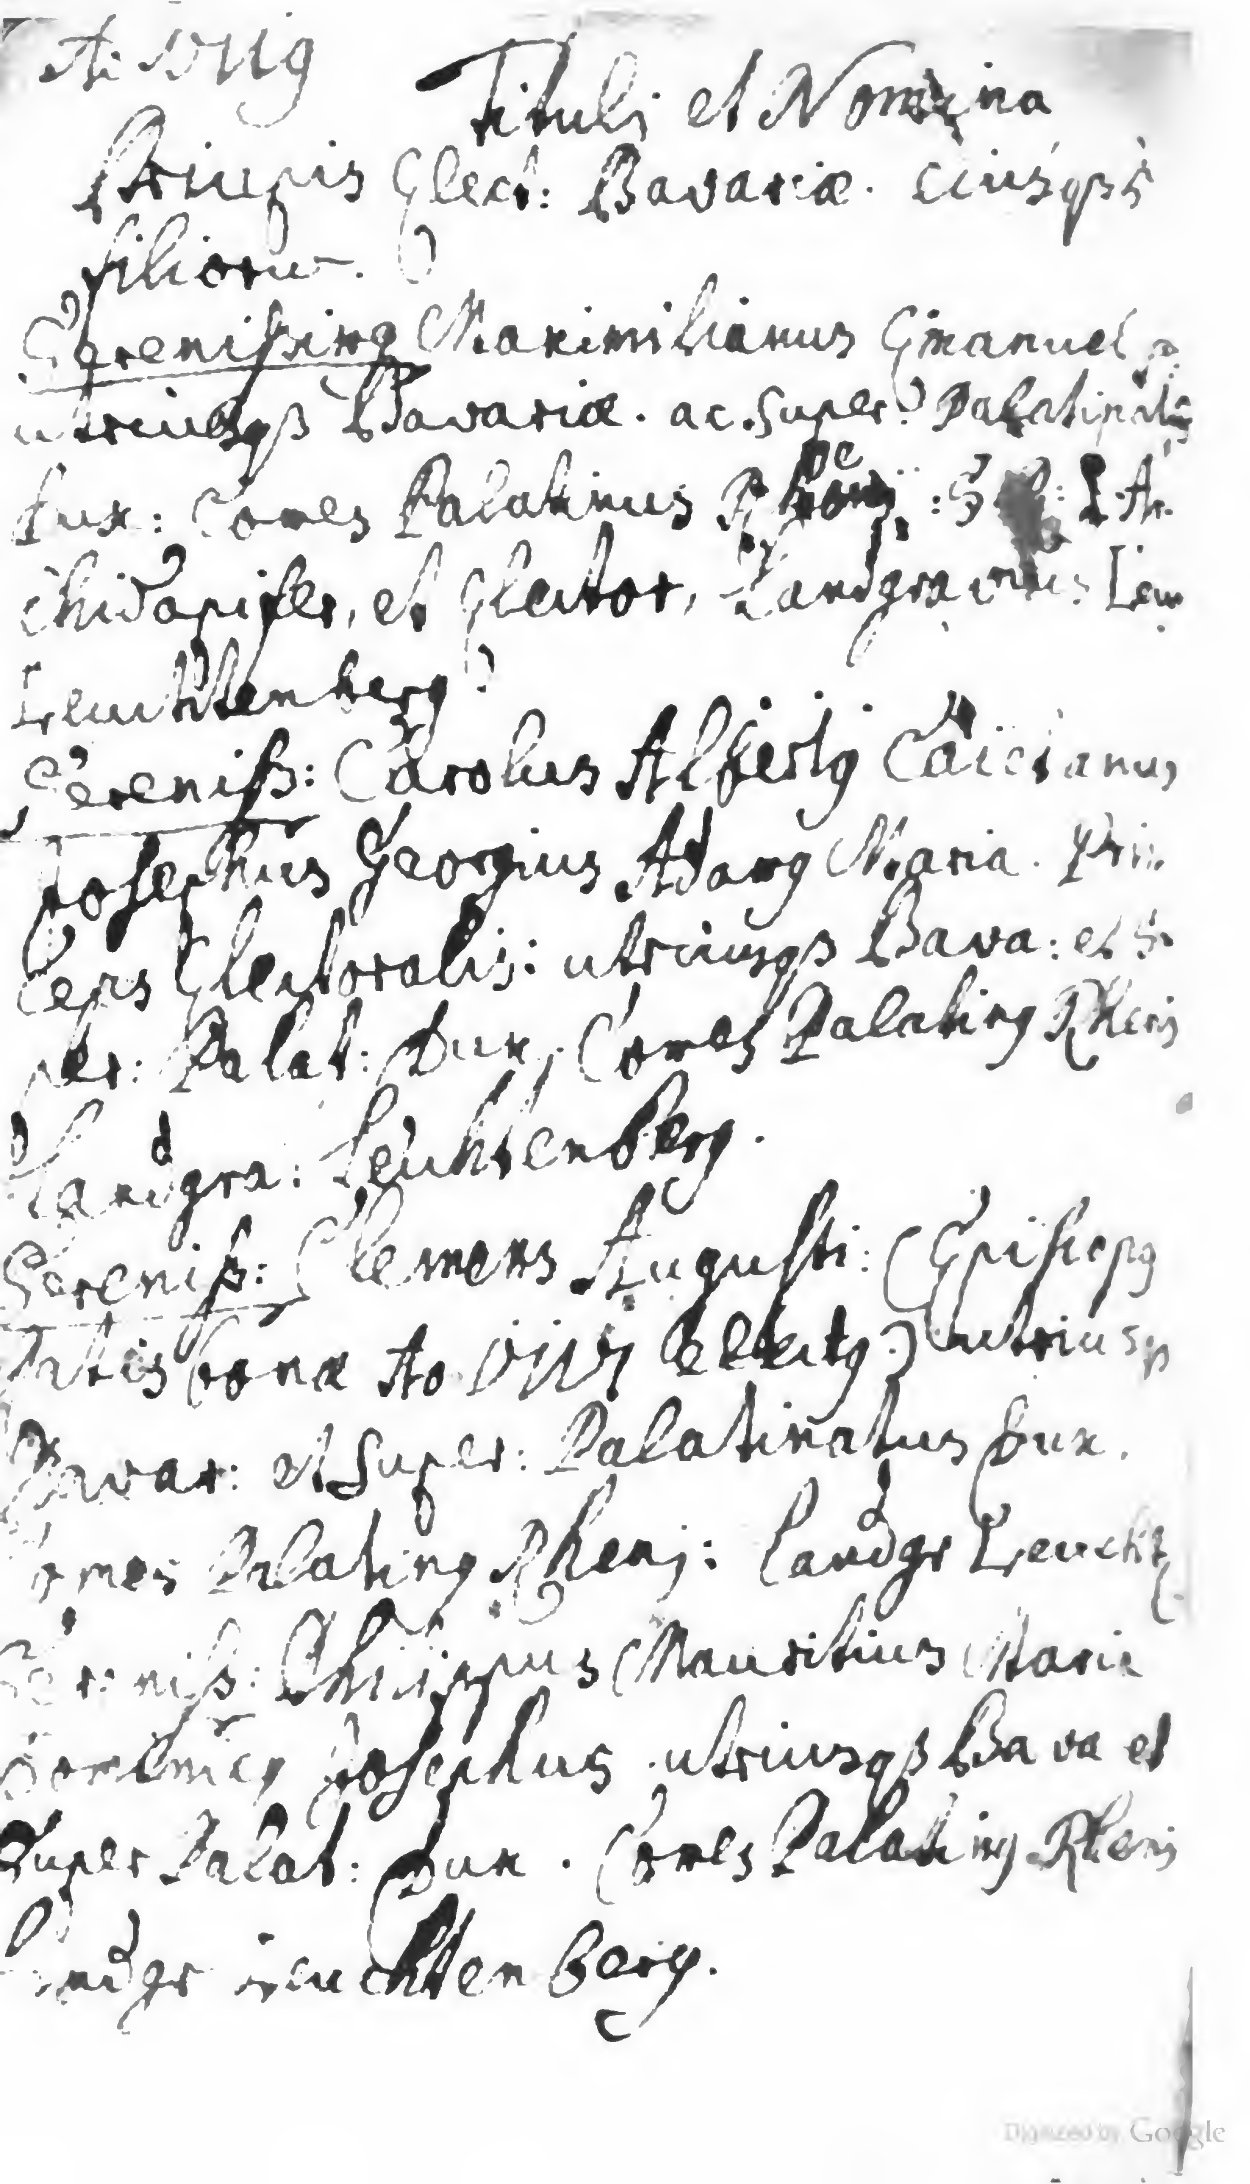 Tituli et Nomina
Principis Elect: Bavariæ. eiusqß
filioru.
Serenißimg Maximilianus Emanuel
utriusqß Bavariæ. ac super: Palatinatus
Dux: Comes Palatinus Rheni: S. I. Ar
chidapifer, et Elector, Landgravius Leu
Leuchtenberg
Sereniß: Carolus Albertg Caietanus
Josephus Georgius Adamg Maria. Prin
ceps Electoralis: utriusqß Bava: et Su
per: Palat: Dux, Comes Palating Rheni
Landgra: Leuchtenberg.
Sereniß: Clemens Augusti: (Episcopg
Ratisbonæ Ao. electg) utriusq
Bavar: et Super: Palatinatus Dux.
Comes Palating Rhenj: Landgr Leucht
Sereniß: Philippus Mauritius Maria
Dominicg Josephus utriusqß Bava et
Super Palat: Dux. Comes Palating Rheni
Landgr Leuchtenberg.
Digitized by Google